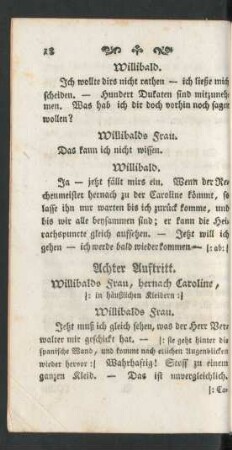 18
Willibald.
Ich wollte dirs nicht rathen — ich ließe mich
scheiden. — Hundert Dukaten sind mitzuneh-
men. Was hab ich dir doch vorhin noch sagen
wollen?
Willibalds Frau.
Das kann ich nicht wissen.
Willibald.
Ja — jetzt fällt mirs ein. Wenn der Re-
chenmeister hernach zu der Caroline kömmt, so
lasse ihn nur warten bis ich zurück komme, und
bis wir alle beysammen sind; er kann die Hei-
rathspunkte gleich aufsetzen. — Jetzt will ich
gehen — ich werde bald wieder kommen — |: ab: |
Achter Auftritt.
Willibalds Frau, hernach Caroline,
|: in häußlichen Kleidern :|
Willibalds Frau.
Jetzt muß ich gleich sehen, was der Herr Ver-
walter mir geschickt hat. — |: sie geht hinter die
spanische Wand, und kommt nach etlichen Augenblicken
wieder hervor :| Wahrhaftig! Stoff zu einem
ganzen Kleid. — Das ist unvergleichlich.
|: Ca-